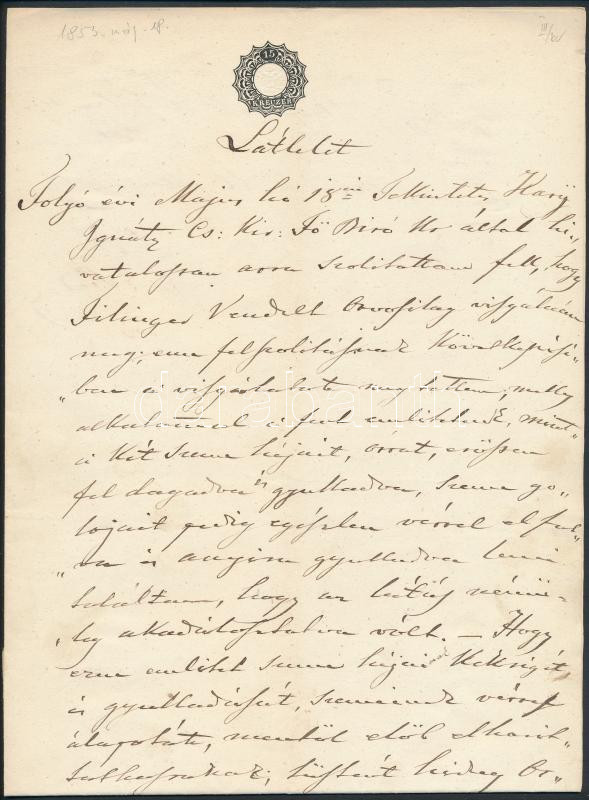 1853. máj. 18.
III/
15
KREUZER
Látlelet
Folyó évi Május hó 18án Tekintetes Hary
Ignátz Cs: Kir: Fő Biró Ur által hi„
vatalossan arra szolitattam fell, hogy
Filinger Vendelt Orvosilag visgálnám
meg; ezen felszolitásnak Következtési„
„ben a visgálatot meg tettem, melly
alkalommal a fent emlitetnek, mint„
a Két szeme héjait, órrát, erössen
fel dagadva és gyulladva, szeme go„
lyojait pedig egészlen vérrel el fut„
„va és anyira gyulladva lenni
találtam, hogy az látás némi„
„leg akadályoztatva vólt. — Hogy
ezen emlitet szeme héjai Kékségit,
és gyulladását, szemeinek véres
álapotát, mentöl elöb elharit„
tathassanak; tüstént hideg bo„
darabanth